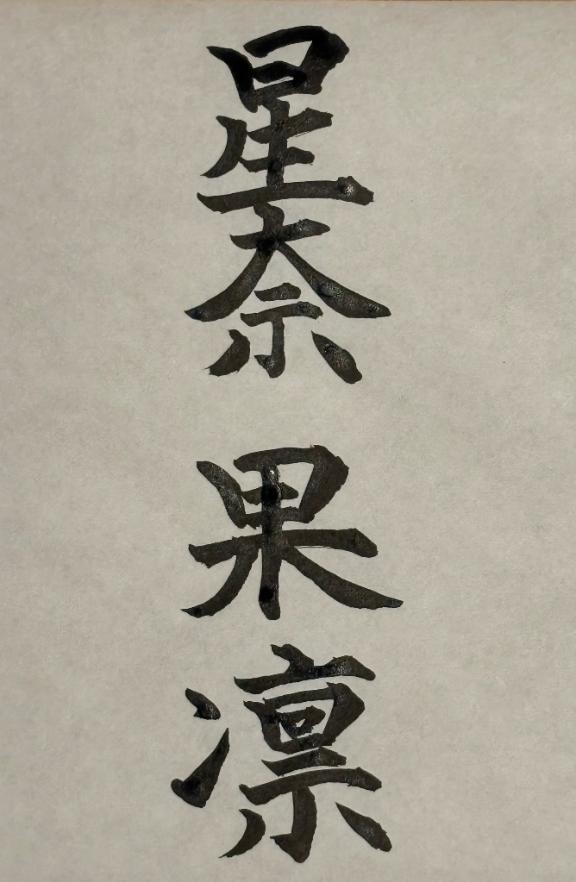 星奈果凛